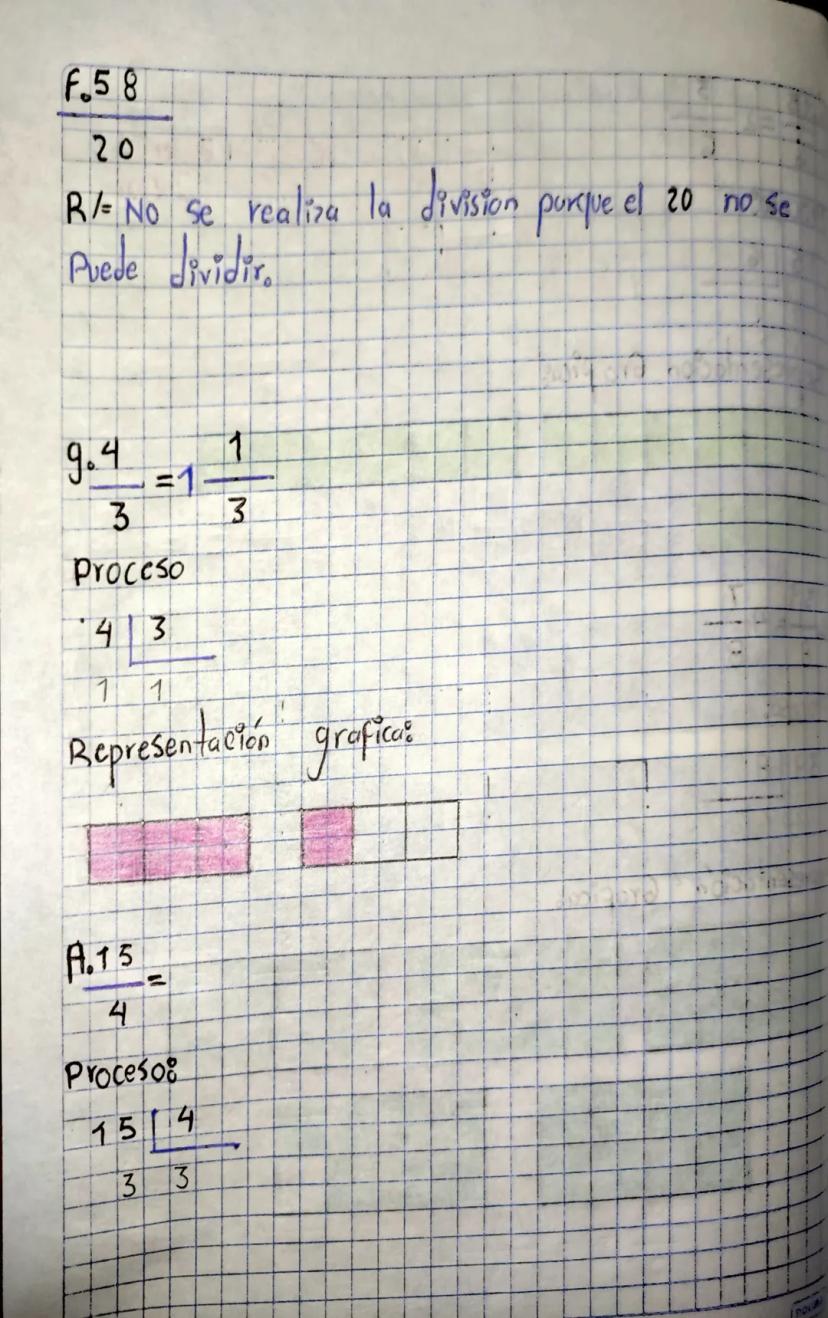 F. 58
20
R/= No se realiza la division porque el 20 no se
Puede dividir.
g. 4/3 = 1 1/3
Proceso
4 3
1 1
Representación grafica:
A. 15/4 =
Proceso:
15 4
3 3